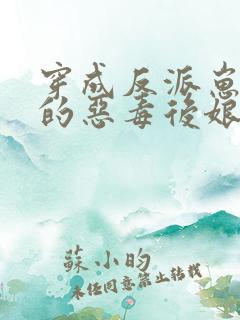 穿成反派崽
的惡毒後娘
蘇小昀
未經同意禁止轉載